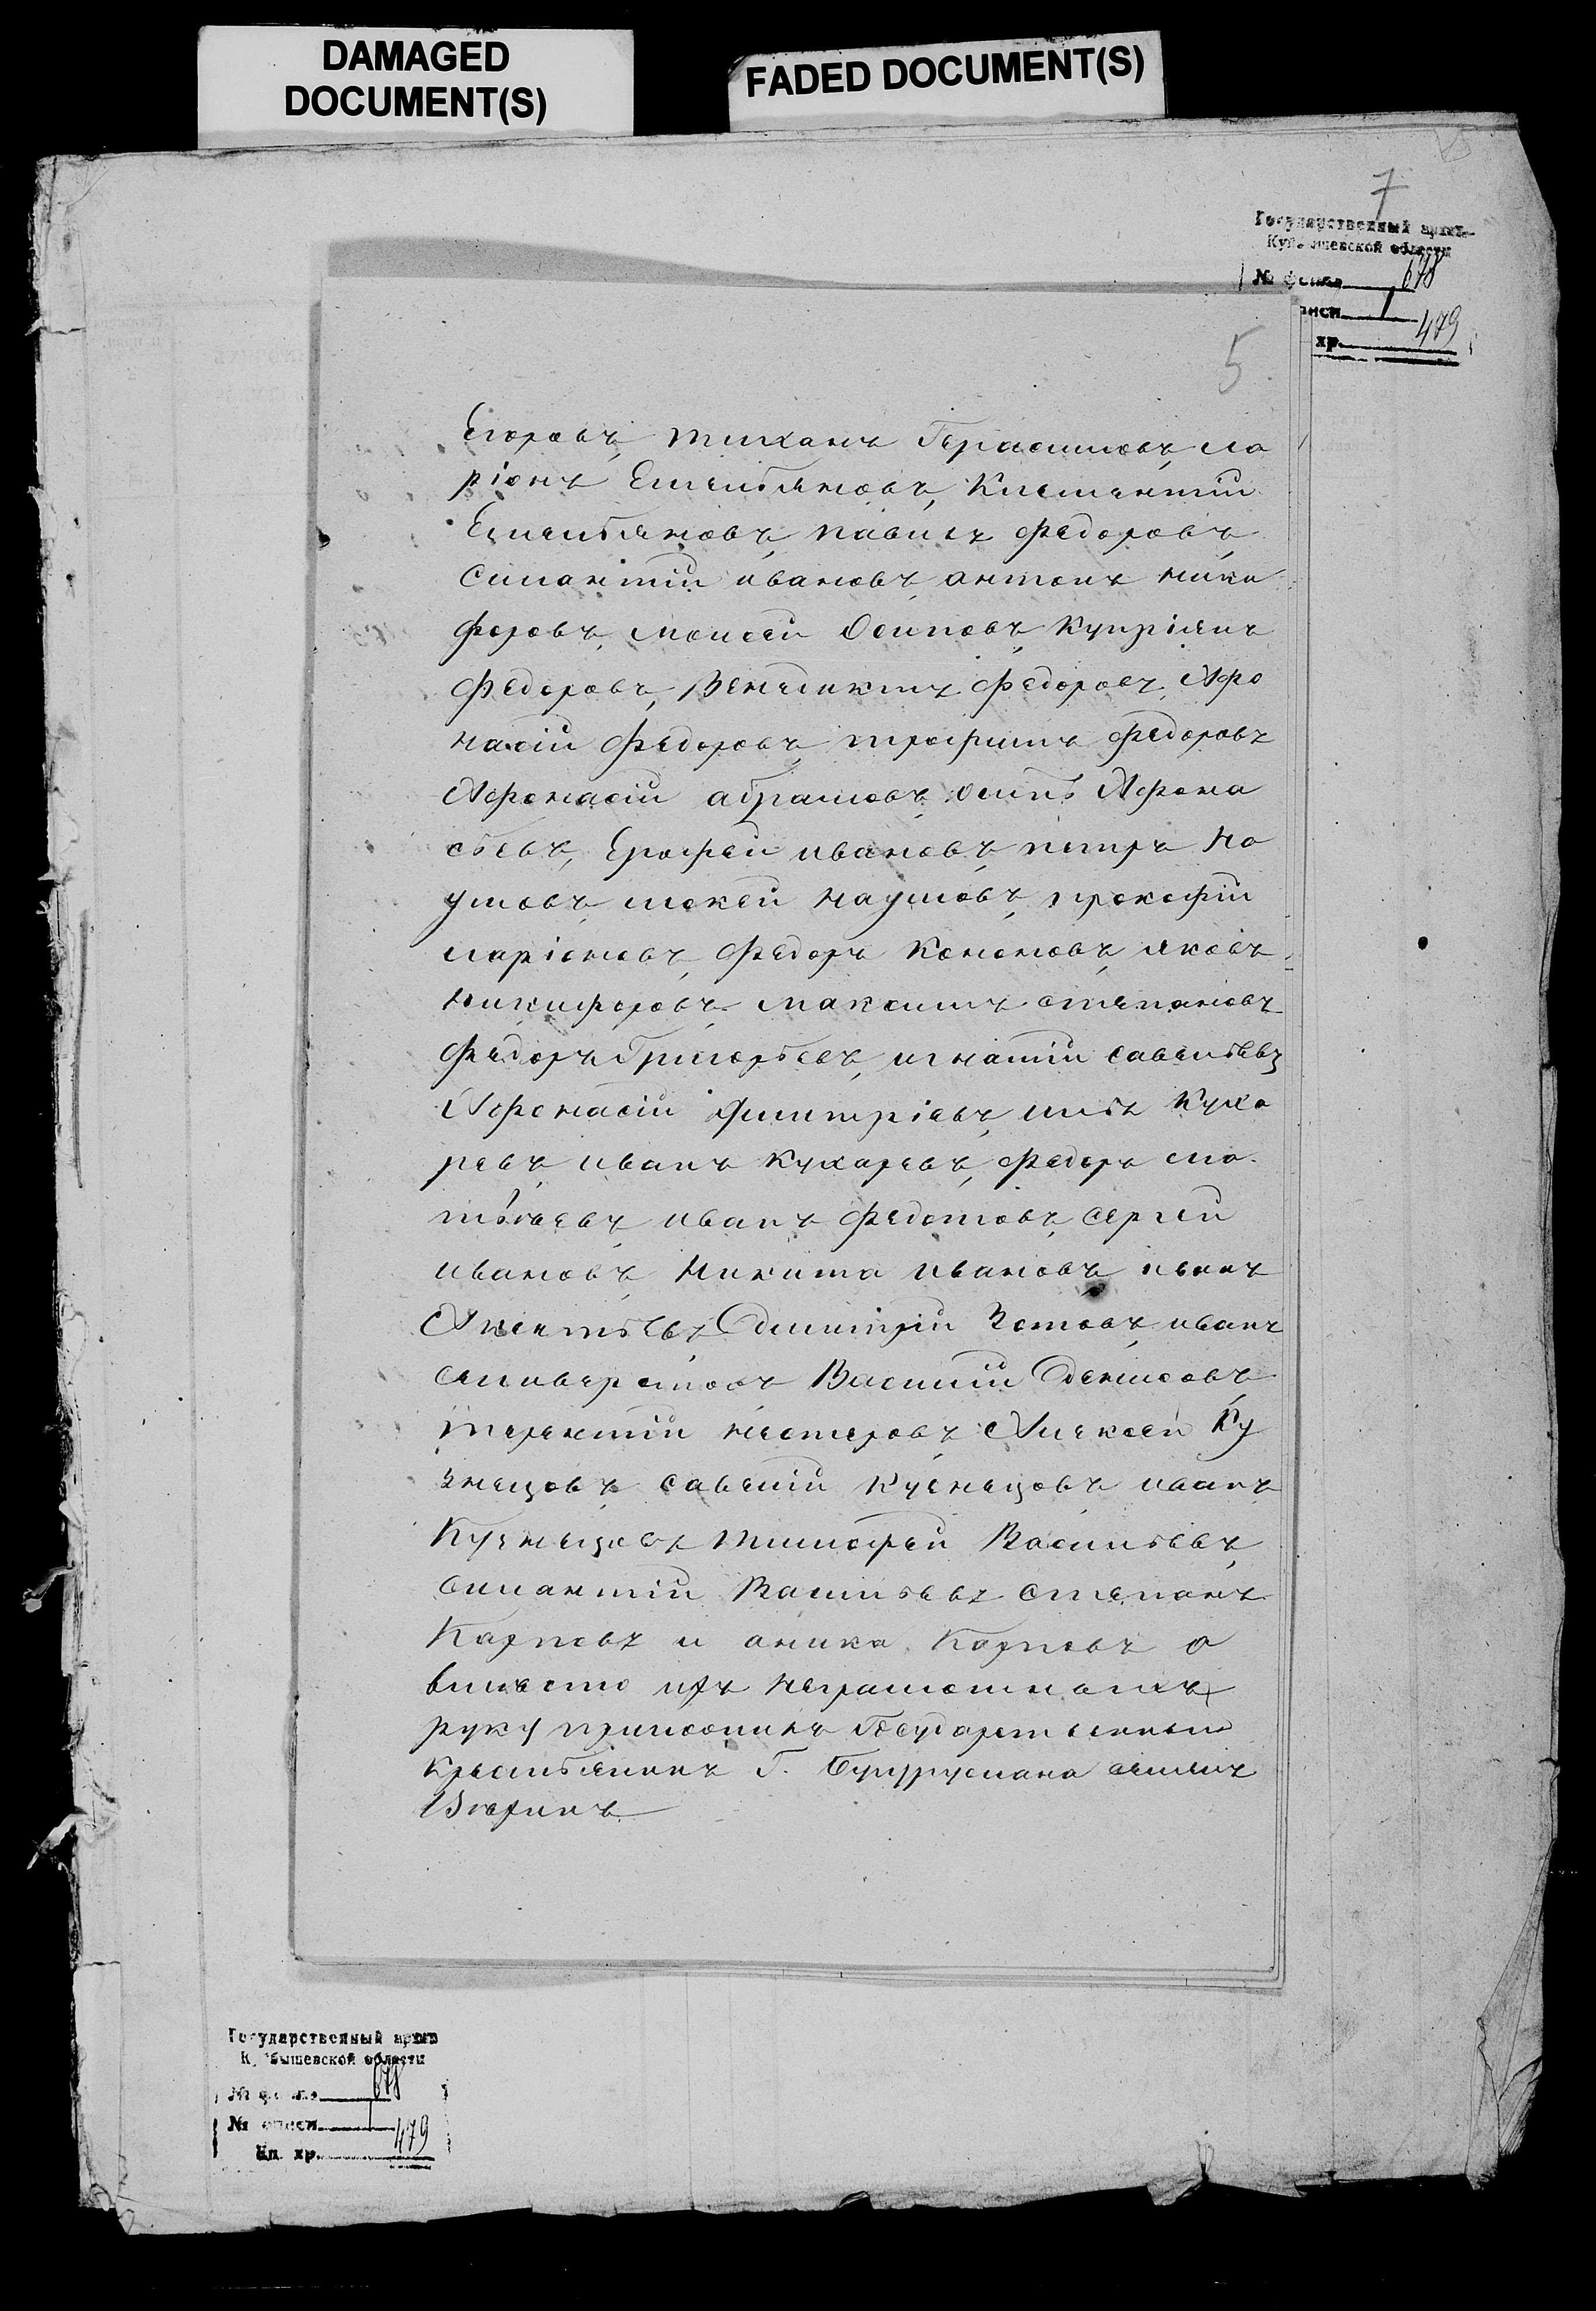 DAMAGED
DOCUMENT(S)
FADED DOCUMENT(S)
7
Государственный архив
Куйбышевской области
№ фонда 678
описи 1
хр. 479
5
Егоровъ, тиханъ Герасимовъ, ла
ріонъ Емельяновъ, Клементій
Емельяновъ, павилъ федоровъ,
Силантій ивановъ, антонъ ники
форовъ, моисей Осиповъ, Купріянъ
федоровъ, Венедиктъ федоровъ, Афо
насій федоровъ, трофимъ федоровъ
Афонасій абрамовъ, осипъ Афона
сьевъ, Ерофей ивановъ, петръ На
умовъ, мокей наумовъ, прокофій
ларіоновъ, федоръ Кононовъ, яковъ
никифоровъ, максимъ степановъ
федоръ Григорьевъ, игнатій савельевъ
Афонасій дмитріевъ, илья Куха
ревъ иванъ Кухаревъ, федоръ ма
твѣевъ, иванъ федотовъ, сергей
ивановъ, Никита ивановъ иванъ
Акентьевъ, Дмитрій Зотовъ, иванъ
селиверстовъ Василій Денисовъ,
терентій нестеровъ, Алексей Ку
знецовъ савелій Кузнецовъ иванъ
Кузнецовъ тимофей Васильевъ,
силантій Васильевъ степанъ
Карповъ и аника Карповъ а
вместо ихъ неграмотныхъ
руку приложилъ Государственный
Крестьянинъ Г. Бугуруслана семенъ
Государственный архив
Куйбышевской области
№ фонда 678
№ описи 1
Ед. хр. 479